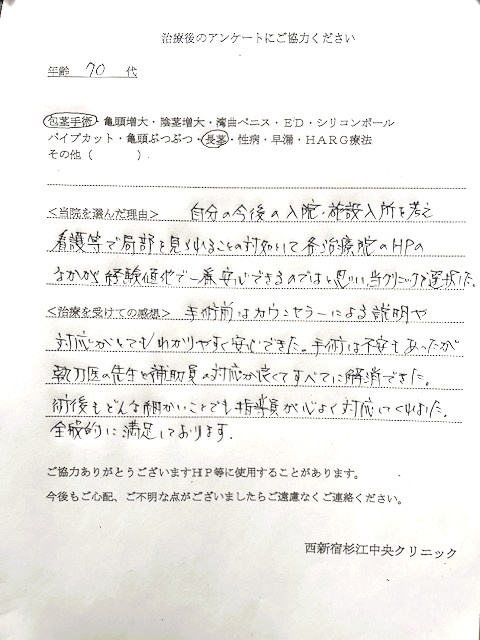 治療後のアンケートにご協力ください
年齢 70 代
包茎手術・亀頭増大・陰茎増大・湾曲ペニス・ED・シリコンボール
パイプカット・亀頭ぶつぶつ・長茎・性病・早漏・HARG療法
その他（ ）
＜当院を選んだ理由＞ 自分の今後の入院・施設入所を考え
看護等で局部を見られることの対処として各治療院のHPの
なかから経験値や で一番安心できるのではと思い、当クリニックを選択した。
＜治療を受けての感想＞ 手術前はカウンセラーによる説明や
対応がとてもわかりやすく安心できた。手術は不安もあったが
執刀医の先生と補助員の対応が良くてすべてに解消できた。
術後もどんな細かいことでも指導員が心よく対応してくれました。
全般的に満足しております。
ご協力ありがとうございますHP等に使用することがあります。
今後もご心配、ご不明な点がございましたらご遠慮なくご連絡ください。
西新宿杉江中央クリニック